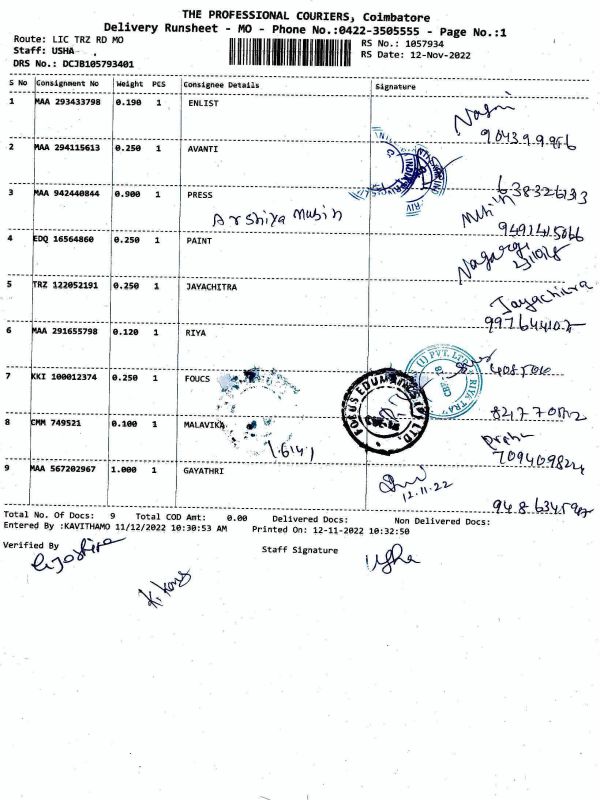 THE PROFESSIONAL COURIERS, Coimbatore
Delivery Runsheet - MO - Phone No.:0422-3505555 - Page No.:1
Route: LIC TRZ RD MO
RS No.: 1057934
Staff: USHA
RS Date: 12-Nov-2022
DRS No.: DCJB105793401
S No Consignment No Weight PCS Consignee Details Signature
1 MAA 293433798 0.190 1 ENLIST
2 MAA 294115613 0.250 1 AVANTI
3 MAA 942440844 0.900 1 PRESS
Arshiya Mubin
4 EDQ 16564860 0.250 1 PAINT
5 TRZ 122052191 0.250 1 JAYACHITRA Jayachitra
6 MAA 291655798 0.120 1 RIYA
7 KKI 100012374 0.250 1 FOUCS
FOCUS EDUMATICS (P) LTD.
(I) PVT. LTD.
8 CMM 749521 0.100 1 MALAVIKA
9 MAA 567202967 1.000 1 GAYATHRI
12.11.22
Total No. Of Docs: 9 Total COD Amt: 0.00 Delivered Docs: Non Delivered Docs:
Entered By :KAVITHAMO 11/12/2022 10:30:53 AM Printed On: 12-11-2022 10:32:50
Verified By Staff Signature
Usha